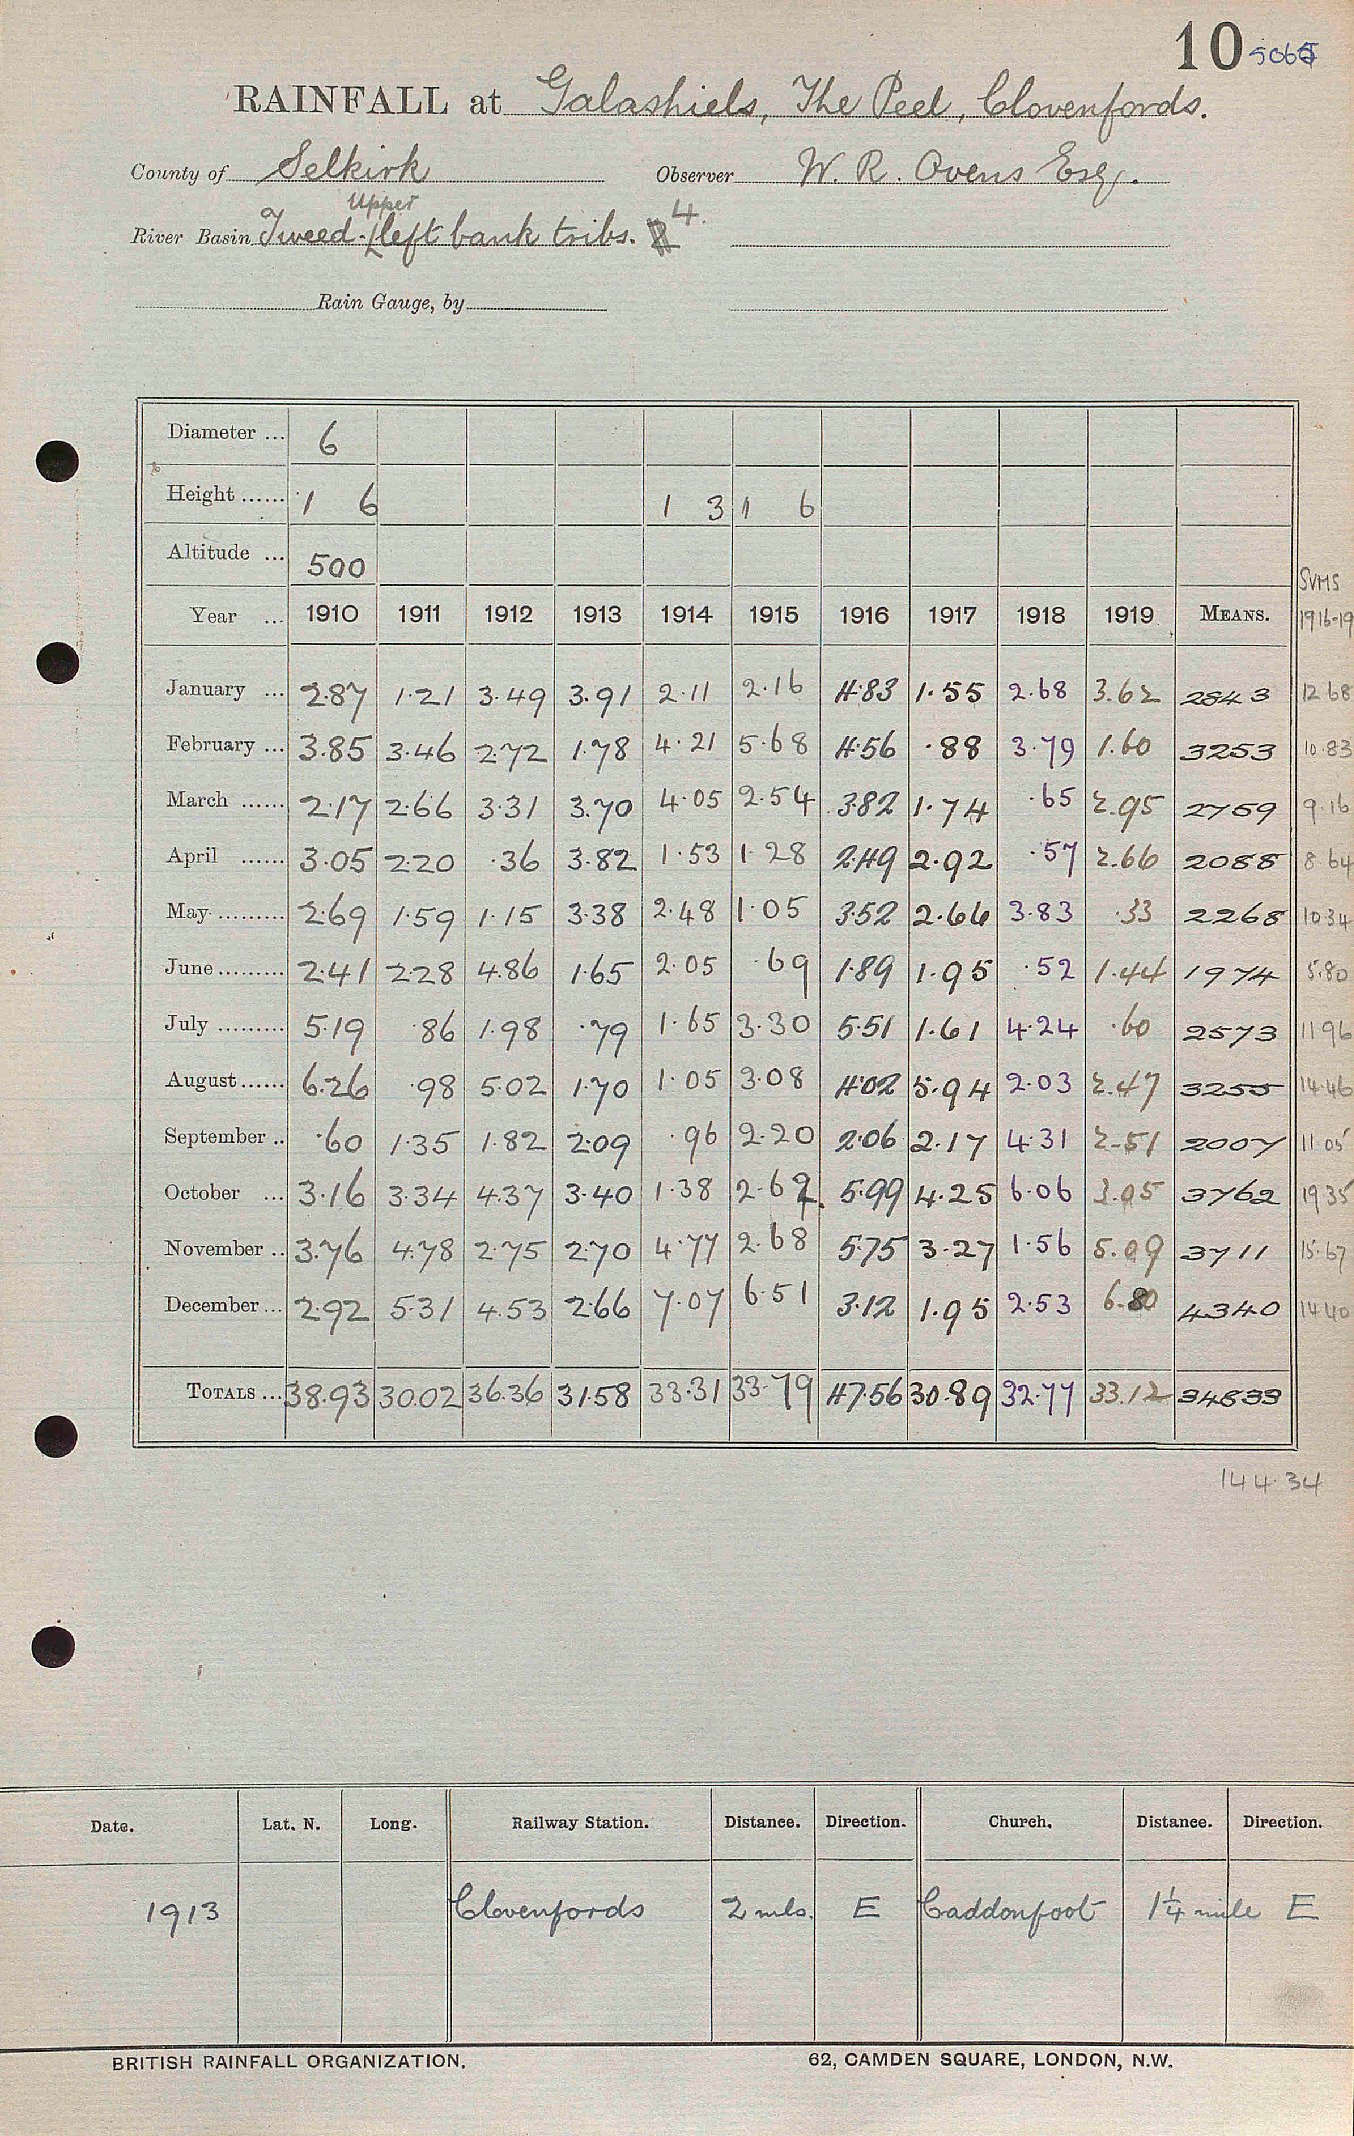 10 5065
RAINFALL at Galashiels, The Peel, Clovenfords.
County of Selkirk Observer W. R. Ovens Esq.
Upper
River Basin Tweed - left bank tribs. 4.
Rain Gauge, by
Diameter ... 6
Height ...... 1 6 1 3 1 6
Altitude ... 500
SUMS
Year ... 1910 1911 1912 1913 1914 1915 1916 1917 1918 1919 MEANS. 1916-19
January ... 2.87 1.21 3.49 3.91 2.11 2.16 4.83 1.55 2.68 3.62 2843 12 68
February ... 3.85 3.46 2.72 1.78 4.21 5.68 4.56 .88 3.79 1.60 3253 10.83
March ...... 2.17 2.66 3.31 3.70 4.05 2.54 3.82 1.74 .65 2.95 2759 9.16
April ...... 3.05 2.20 .36 3.82 1.53 1.28 2.49 2.92 .57 2.66 2088 8.64
May ......... 2.69 1.59 1.15 3.38 2.48 1.05 3.52 2.66 3.83 .33 2268 10.34
June ......... 2.41 2.28 4.86 1.65 2.05 .69 1.89 1.95 .52 1.44 1974 5.80
July ......... 5.19 .86 1.98 .79 1.65 3.30 5.51 1.61 4.24 .60 2573 11 96
August ...... 6.26 .98 5.02 1.70 1.05 3.08 4.02 5.94 2.03 2.47 3255 14.46
September .. .60 1.35 1.82 2.09 .96 2.20 2.06 2.17 4.31 2.51 2007 11.05
October ... 3.16 3.34 4.37 3.40 1.38 2.62 5.99 4.25 6.06 3.05 3762 19 35
November .. 3.76 4.78 2.75 2.70 4.77 2.68 5.75 3.27 1.56 5.09 3711 15.67
December ... 2.92 5.31 4.53 2.66 7.07 6.51 3.12 1.95 2.53 6.80 4340 14.40
TOTALS ... 38.93 30.02 36.36 31.58 33.31 33.79 47.56 30.89 32.77 33.12 34833
144.34
Date. Lat. N. Long. Railway Station. Distance. Direction. Church. Distance. Direction.
1913 Clovenfords 2 mls. E Caddonfoot 1¼ mile E
BRITISH RAINFALL ORGANIZATION. 62, CAMDEN SQUARE, LONDON, N.W.